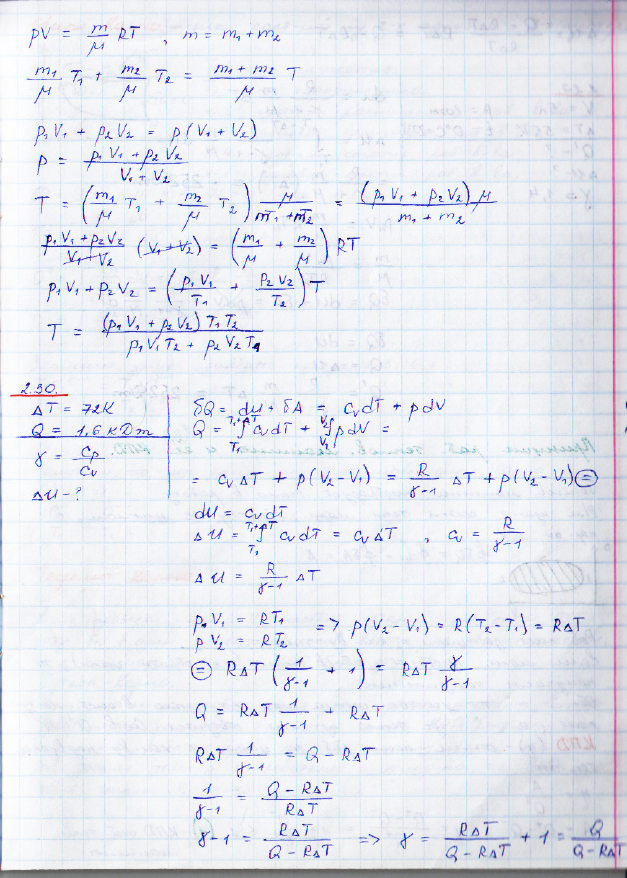 pV = m/μ RT , m = m₁ + m₂
m₁/μ T₁ + m₂/μ T₂ = (m₁ + m₂)/μ T
p₁V₁ + p₂V₂ = p(V₁ + V₂)
p = (p₁V₁ + p₂V₂)/(V₁ + V₂)
T = (m₁/μ T₁ + m₂/μ T₂) μ/(m₁ + m₂) = (p₁V₁ + p₂V₂)μ/(m₁ + m₂)
(p₁V₁ + p₂V₂)/(V₁ + V₂) (V₁ + V₂) = (m₁/μ + m₂/μ) RT
p₁V₁ + p₂V₂ = (p₁V₁/T₁ + p₂V₂/T₂) T
T = (p₁V₁ + p₂V₂) T₁T₂/(p₁V₁T₂ + p₂V₂T₁)
2.30.
ΔT = 72К
Q = 1,6 кДж
γ = Cp/Cv
ΔU - ?
δQ = dU + δA = CvdT + pdV
Q = ∫_{T₁}^{T₁+ΔT} CvdT + ∫_{V₁}^{V₂} pdV =
= CvΔT + p(V₂ - V₁) = R/(γ-1) ΔT + p(V₂ - V₁) ⊜
dU = CvdT
ΔU = ∫_{T₁}^{T₁+ΔT} CvdT = CvΔT , Cv = R/(γ-1)
ΔU = R/(γ-1) ΔT
pV₁ = RT₁
pV₂ = RT₂ => p(V₂ - V₁) = R(T₂ - T₁) = RΔT
⊜ RΔT (1/(γ-1) + 1) = RΔT γ/(γ-1)
Q = RΔT 1/(γ-1) + RΔT
RΔT 1/(γ-1) = Q - RΔT
1/(γ-1) = (Q - RΔT)/RΔT
γ-1 = RΔT/(Q - RΔT) => γ = RΔT/(Q - RΔT) + 1 = Q/(Q - RΔT)